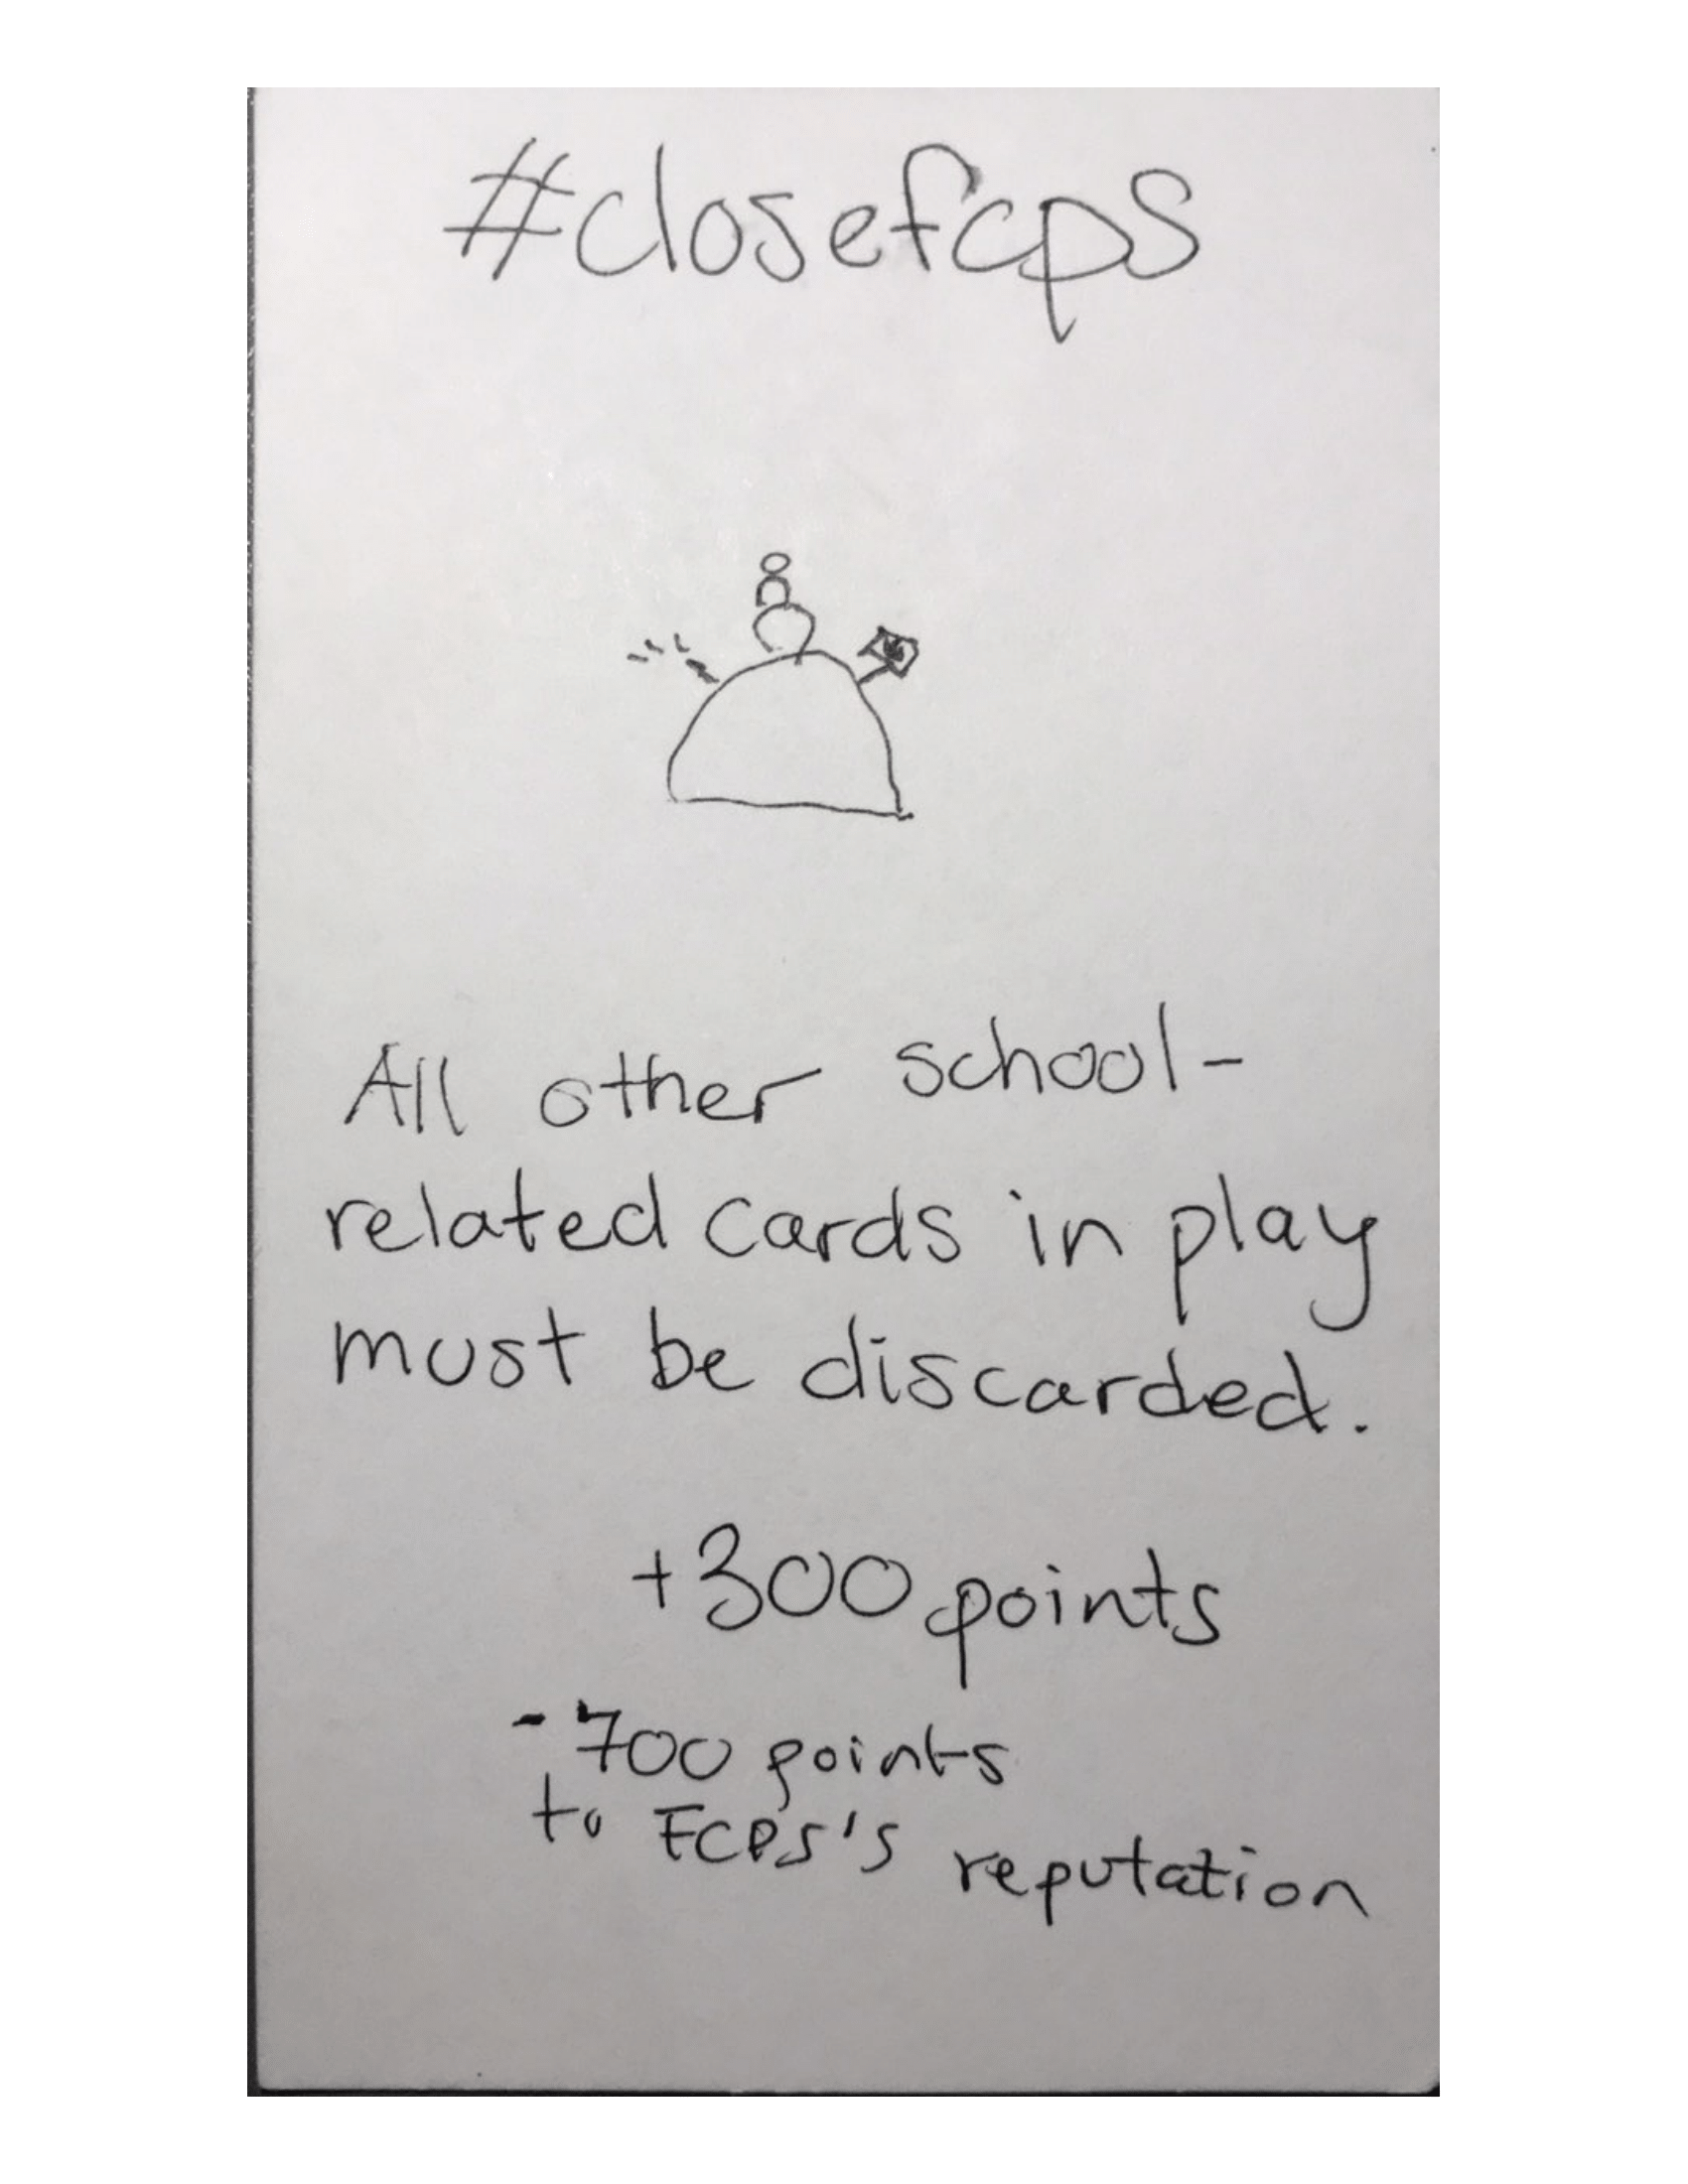 #closefcps
All other school-
related cards in play
must be discarded.
+300 points
-700 points
to FCPS's reputation